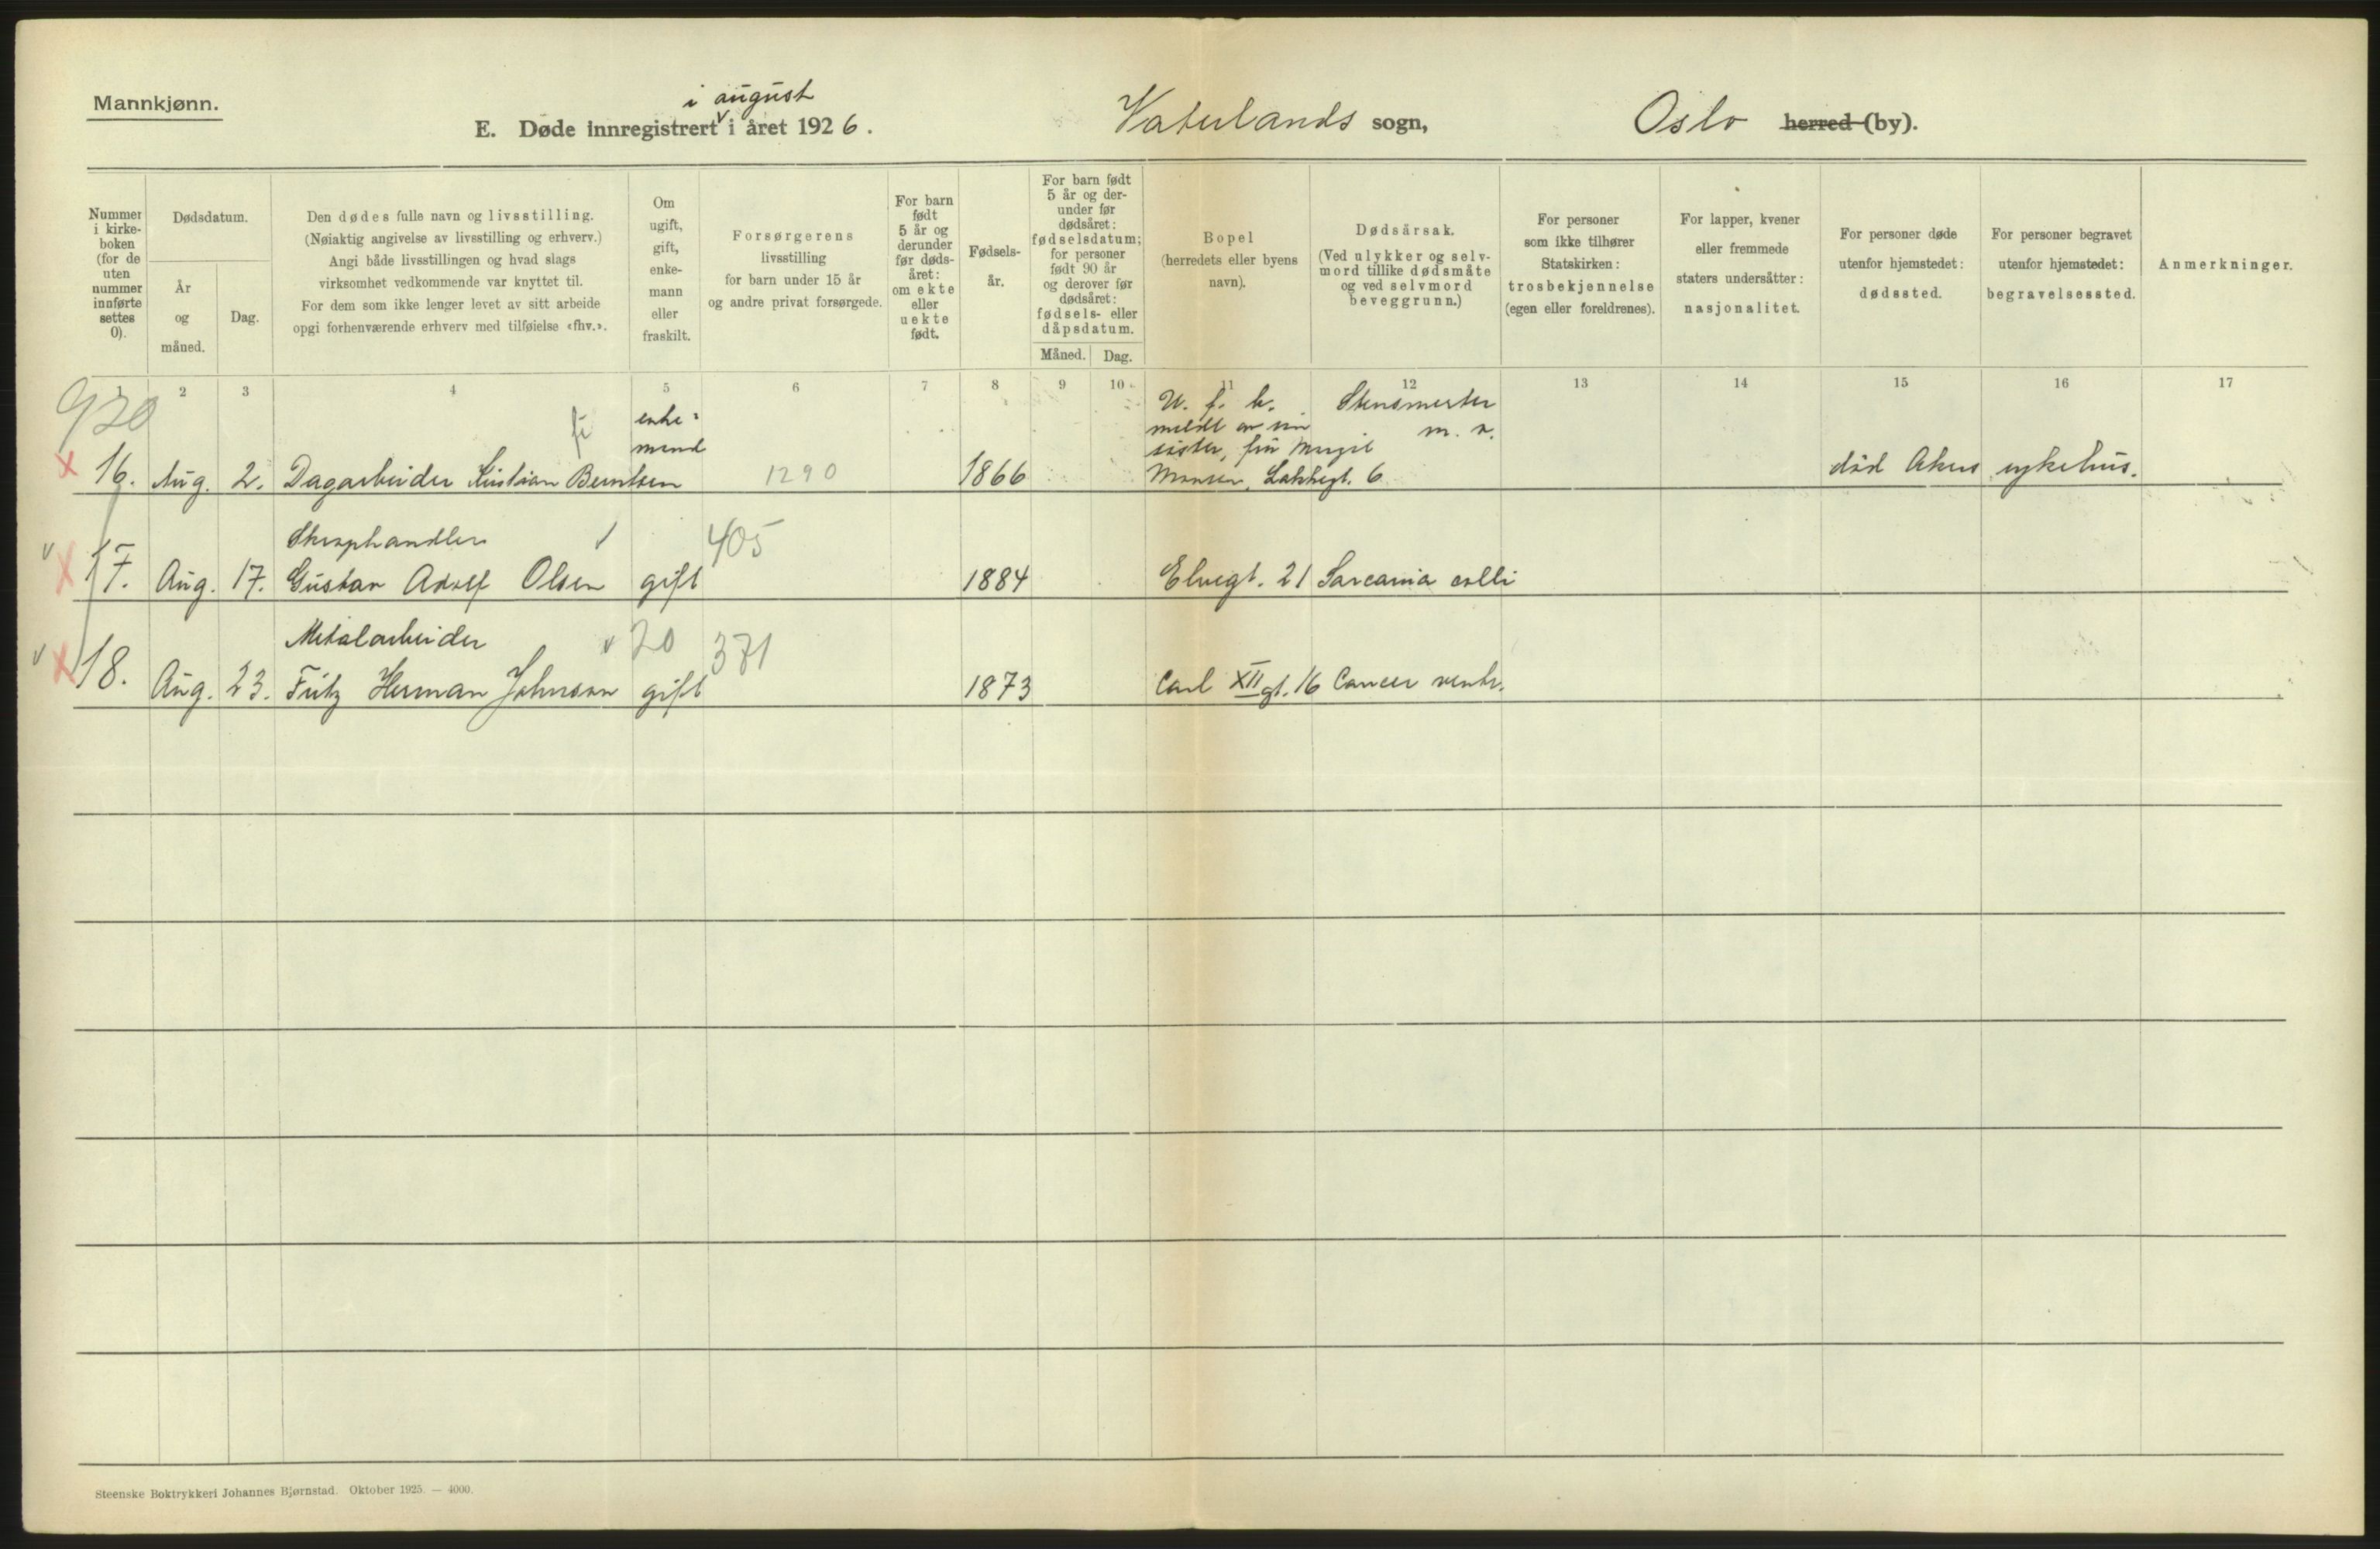 Mannkjønn.
i august
E. Døde innregistrert v i året 1926.
Vaterlands sogn,
Oslo herred (by).
Nummer i kirke-boken (for de uten nummer innførte settes 0).
Dødsdatum.
År og måned.
Dag.
Den dødes fulle navn og livsstilling.
(Nøiaktig angivelse av livsstilling og erhverv.)
Angi både livsstillingen og hvad slags
virksomhet vedkommende var knyttet til.
For dem som ikke lenger levet av sitt arbeide
opgi forhenværende erhverv med tilføielse «fhv.».
Om ugift, gift, enke-mann eller fraskilt.
Forsørgerens
livsstilling
for barn under 15 år
og andre privat forsørgede.
For barn født 5 år og derunder før døds-året: om ekte eller uekte født.
Fødsels-år.
For barn født 5 år og der-under før dødsåret: fødselsdatum; for personer født 90 år og derover før dødsåret: fødsels- eller dåpsdatum.
Måned.
Dag.
Bopel
(herredets eller byens
navn).
Dødsårsak.
(Ved ulykker og selv-
mord tillike dødsmåte
og ved selvmord
beveggrunn.)
For personer
som ikke tilhører
Statskirken:
trosbekjennelse
(egen eller foreldrenes).
For lapper, kvener
eller fremmede
staters undersåtter:
nasjonalitet.
For personer døde
utenfor hjemstedet:
dødssted.
For personer begravet
utenfor hjemstedet:
begravelsessted.
Anmerkninger.
1 2 3 4 5 6 7 8 9 10 11 12 13 14 15 16 17
920
x 16. Aug. 2. Dagarbeider Kristian Berntsen
enke-
mand
1290
1866
U. f. b.
meldt av sin
søster, frü Margit
Monsen, Lakkegt. 6
m. v.
død Akers sykehus.
Skraphandler
v x 17. Aug. 17. Gustav Adolf Olsen gift 405 1884 Elvegt. 21 Sarcania colli
Metalarbeider
v x 18. Aug. 23. Fritz Herman Johnson v 20 gift 371 1873 Carl XII gt. 16 Cancer ventr.
Steenske Boktrykkeri Johannes Bjørnstad. Oktober 1925. — 4000.